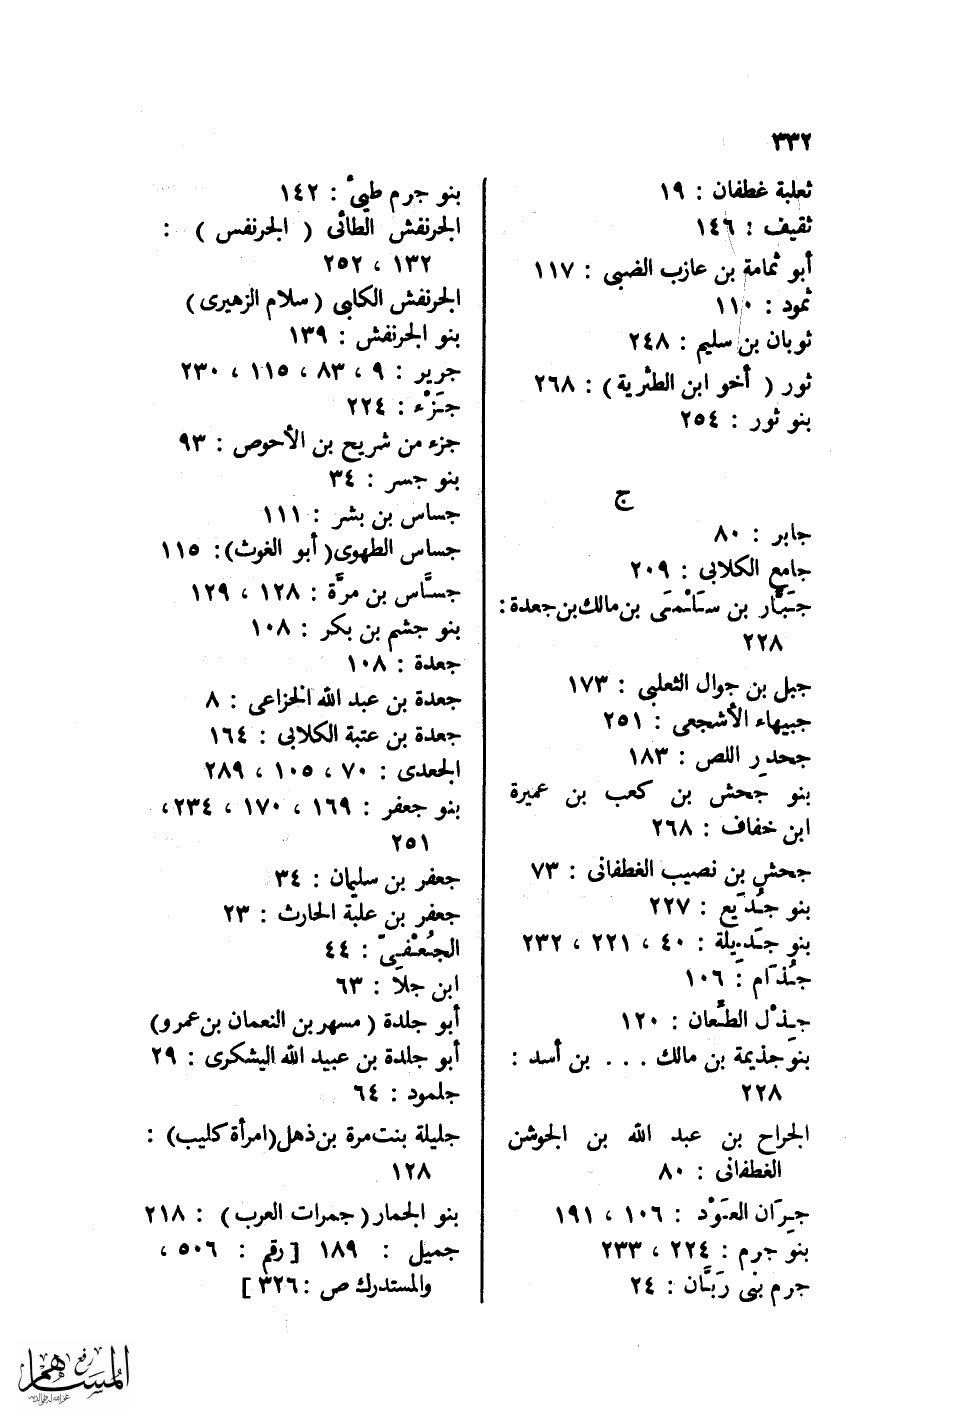 ٣٣٢
ثعلبة غطفان : ١٩
ثقيف : ١٤٦
أبو ثمامة بن عازب الضبى : ١١٧
ثمود : ١١٠
ثوبان بن سليم : ٢٤٨
ثور ( أخو ابن الطثرية ) : ٢٦٨
بنو ثور : ٢٥٤
ج
جابر : ٨٠
جامع الكلابى : ٢٠٩
جَبَّار بن سَلْمَى بن مالك بن جعدة :
٢٢٨
جبل بن جوال الثعلبى : ١٧٣
جبيهاء الأشجعى : ٢٥١
جحدر اللص : ١٨٣
بنو جَحش بن كعب بن عميرة
ابن خفاف : ٢٦٨
جحش بن نصيب الغطفانى : ٧٣
بنو جُدَيع : ٢٢٧
بنو جَدِيلة : ٤٠ ، ٢٢١ ، ٢٣٢
جُذَام : ١٠٦
جِذْل الطَّعان : ١٢٠
بنو جذيمة بن مالك . . . بن أسد :
٢٢٨
الجراح بن عبد الله بن الجوشن
الغطفانى : ٨٠
جِرَان العَوْد : ١٠٦ ، ١٩١
بنو جرم : ٢٢٤ ، ٢٣٣
جرم بنى رَبَّان : ٢٤
بنو جرم طيىُ : ١٤٢
الجرنفش الطائى ( الجرنفس ) :
١٣٢ ، ٢٥٢
الجرنفش الكابى ( سلام الزهيرى )
بنو الجرنفش : ١٣٩
جرير : ٩ ، ٨٣ ، ١١٥ ، ٢٣٠
جَزْء : ٢٢٤
جزء من شريح بن الأحوص : ٩٣
بنو جسر : ٣٤
جساس بن بشر : ١١١
جساس الطهوى ( أبو الغوث ) : ١١٥
جسَّاس بن مرَّة : ١٢٨ ، ١٢٩
بنو جشم بن بكر : ١٠٨
جعدة : ١٠٨
جعدة بن عبد الله الخزاعى : ٨
جعدة بن عتبة الكلابى : ١٦٤
الجعدى : ٧٠ ، ١٠٥ ، ٢٨٩
بنو جعفر : ١٦٩ ، ١٧٠ ، ٢٣٤ ،
٢٥١
جعفر بن سليمان : ٣٤
جعفر بن علبة الحارث : ٢٣
الجُعْفِىّ : ٤٤
ابن جلاَ : ٦٣
أبو جلدة ( مسهر بن النعمان بن عمرو )
أبو جلدة بن عبيد الله اليشكرى : ٢٩
جلمود : ٦٤
جليلة بنت مرة بن ذهل ( امرأة كليب ) :
١٢٨
بنو الجمار ( جمرات العرب ) : ٢١٨
جميل : ١٨٩ [ رقم : ٥٠٦ ،
والمستدرك ص : ٣٢٦ ]